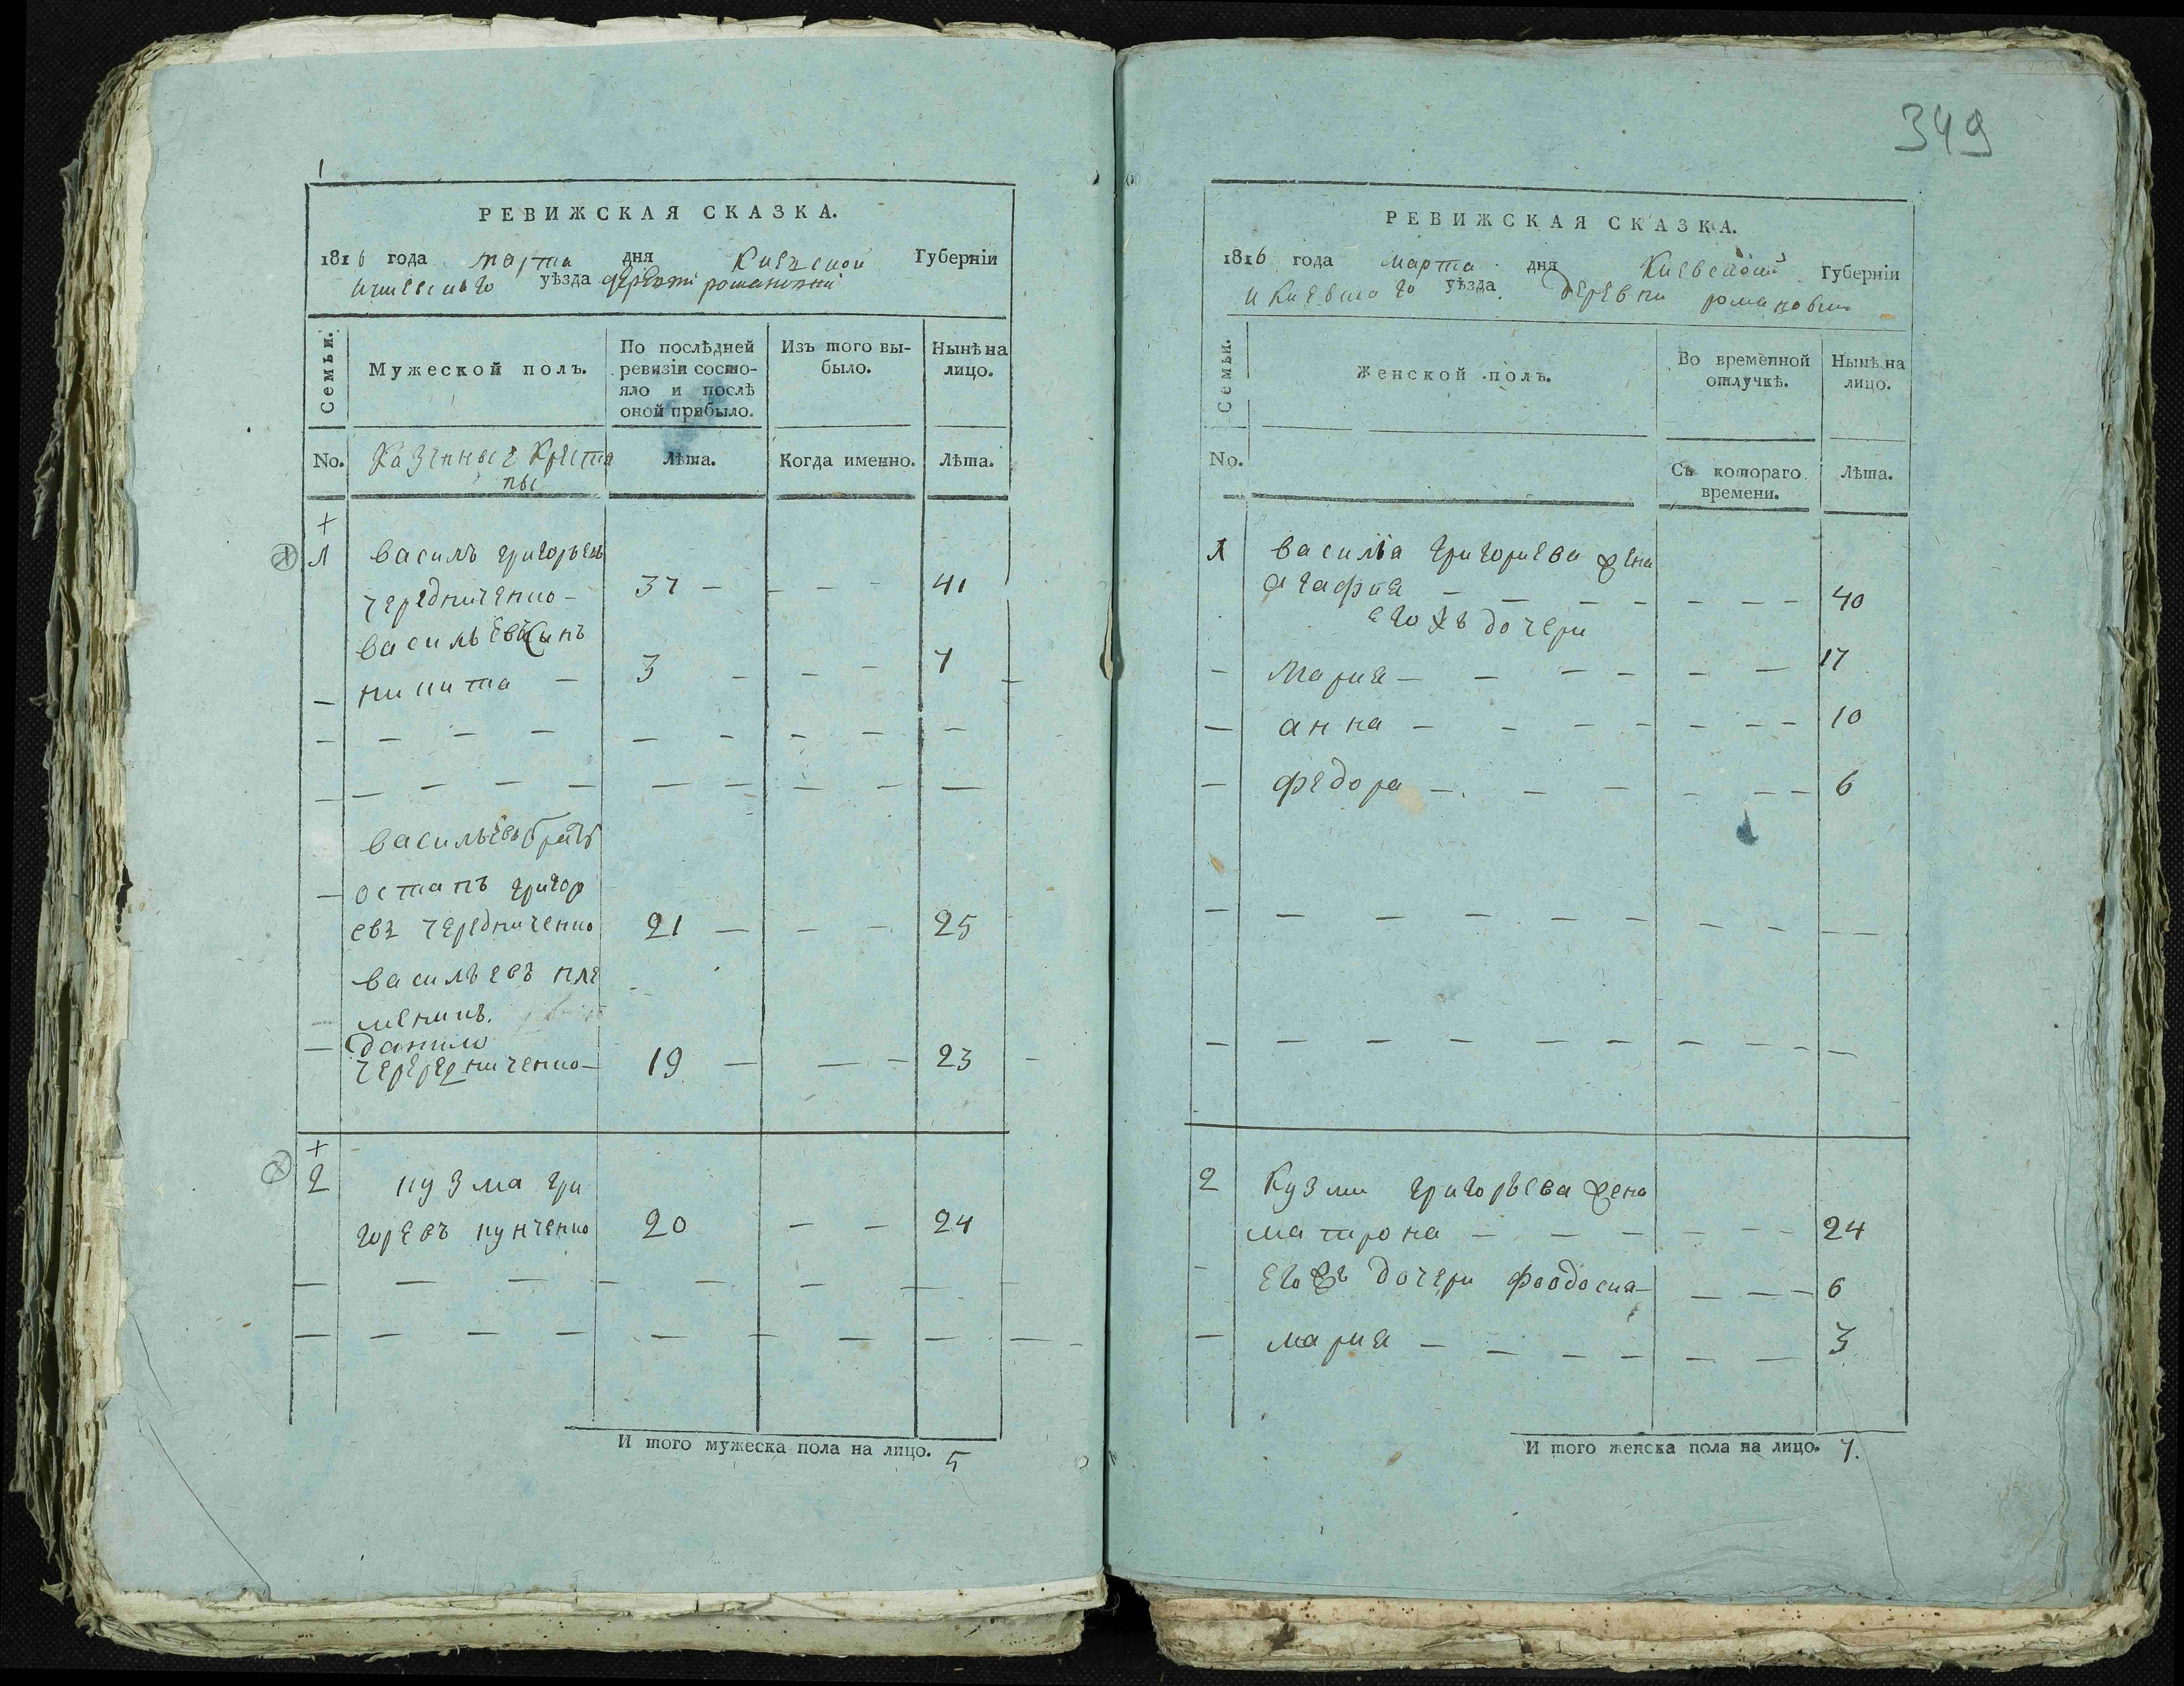 РЕВИЖСКАЯ СКАЗКА.
1816 года марта дня Киевской Губерніи
и киевскаго уѣзда деревни романовки
Семьи.
Мужеской полъ.
По послѣдней ревизіи состо-
яло и послѣ
оной прибыло.
Изъ того вы-
было.
Нынѣ на
лицо.
No. Казенные Крестя
ны
Лѣта.
Когда именно.
Лѣта.
1 василъ григорьевъ
чередниченко 37 41
васильевъ сынъ
никита 3 7
васильевъ братъ
остапъ григор
евъ чередниченко 21 25
васильевъ пле
меникъ.
данило
черередниченко 19 23
2 кузма гри
горевъ кунченко 20 24
И того мужеска пола на лицо. 5
349
РЕВИЖСКАЯ СКАЗКА.
1816 года марта дня Киевской Губерніи
и киевскаго уѣзда деревни романовки
Семьи.
Женской полъ.
Во временной
отлучкѣ.
Нынѣ на
лицо.
No.
Съ котораго
времени.
Лѣта.
1 василіа григориева жена
агафия 40
его жъ дочери
мария 17
анна 10
федора 6
2 Кузми григорьева жена
матрона 24
его жъ дочери феодосиа 6
мария 3
И того женска пола на лицо. 7.